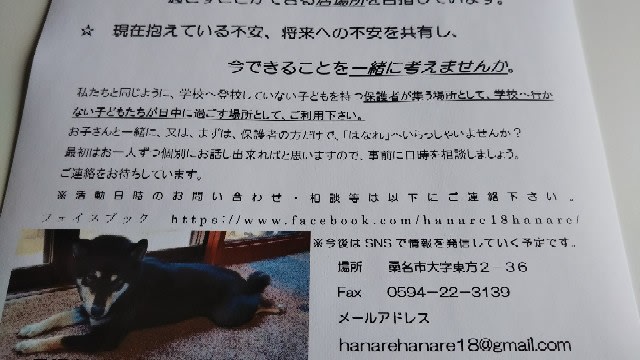 過ごすことができる居場所を目指しています。
☆ 現在抱えている不安、将来への不安を共有し、
今できることを一緒に考えませんか。
私たちと同じように、学校へ登校していない子どもを持つ保護者が集う場所として、学校へ行か
ない子どもたちが日中に過ごす場所として、ご利用下さい。
お子さんと一緒に、又は、まずは、保護者の方だけで、「はなれ」へいらっしゃいませんか?
最初はお一人ずつ個別にお話し出来ればと思いますので、事前に日時を相談しましょう。
ご連絡をお待ちしています。
※活動日時のお問い合わせ・相談等は以下にご連絡下さい。
フェイスブック https://www.facebook.com/hanare18hanare/
※今後はSNSで情報を発信していく予定です。
場所 桑名市大字東方2-36
Fax 0594-22-3139
メールアドレス
hanarehanare18@gmail.com